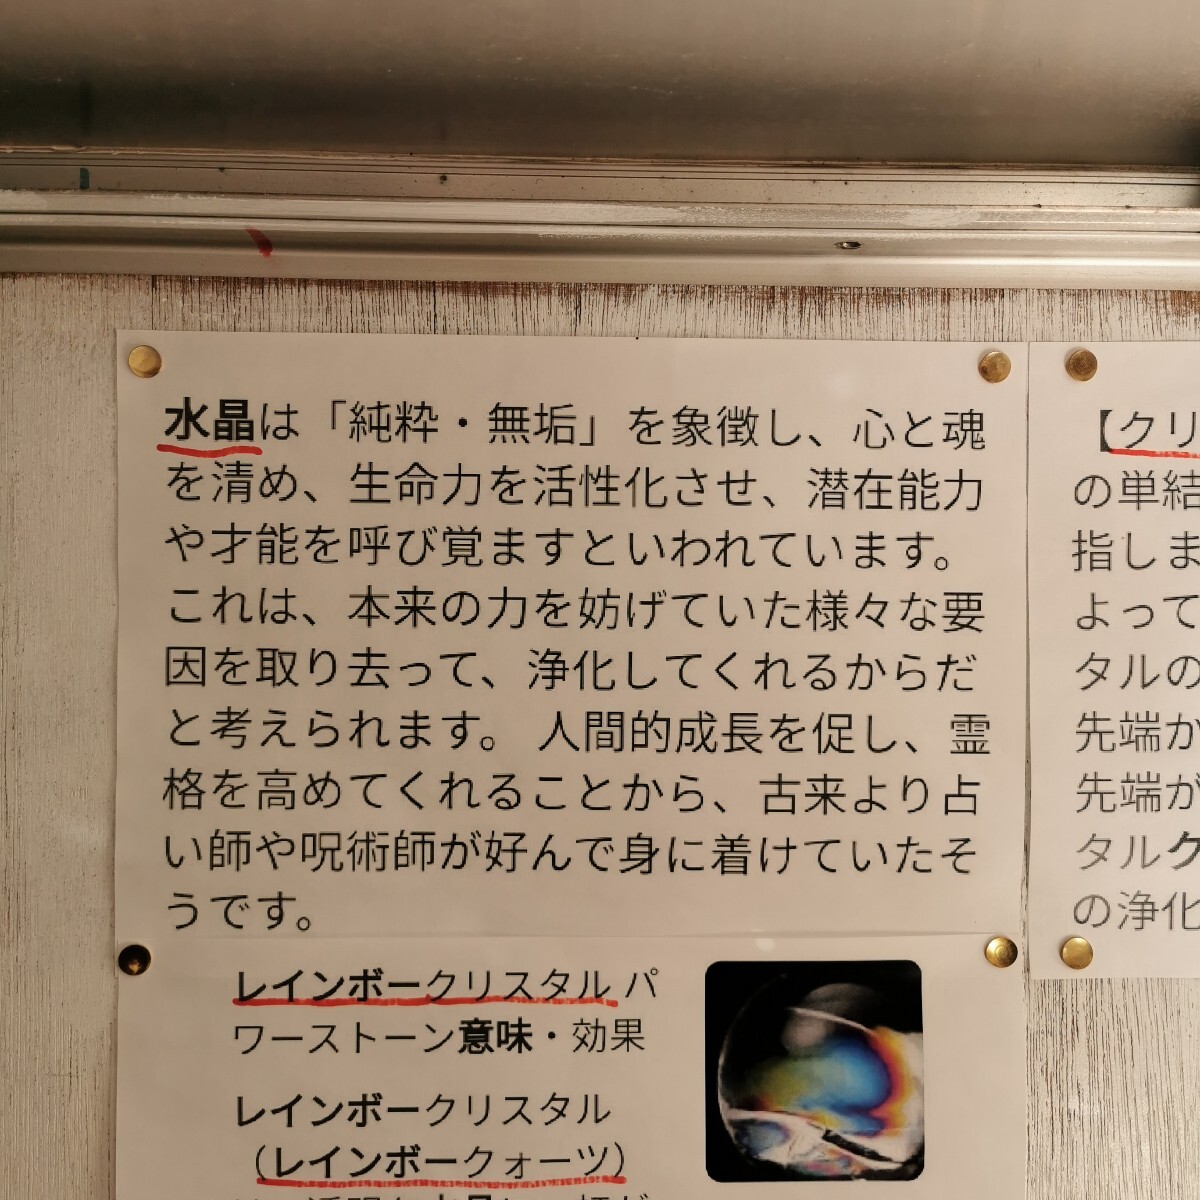 水晶は「純粋・無垢」を象徴し、心と魂
を清め、生命力を活性化させ、潜在能力
や才能を呼び覚ますといわれています。
これは、本来の力を妨げていた様々な要
因を取り去って、浄化してくれるからだ
と考えられます。 人間的成長を促し、霊
格を高めてくれることから、古来より占
い師や呪術師が好んで身に着けていたそ
うです。
レインボークリスタル パ
ワーストーン意味・効果
レインボークリスタル
（レインボークォーツ）
【クリ
の単結
指しま
よって
タルの
先端が
先端が
タルク
の浄化